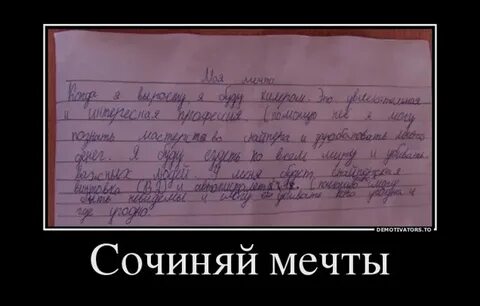 Моя мечта
Когда я вырасту, я буду килером. Это увлекательная
и интересная профессия помощью неё я могу
познать мастерство снайпера и зарабатывать много
денег. Я буду ездить по всему миру и убивать
важных людей. У меня будет снайперская
винтовка и
быть невидимы и убивать кого угодно и
где угодно.
DEMOTIVATORS.TO
Сочиняй мечты